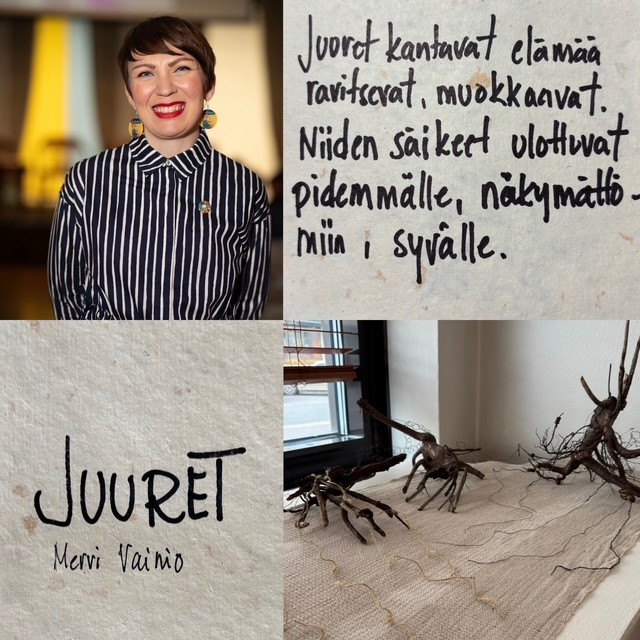 Juuret kantavat elämää
ravitsevat, muokkaavat.
Niiden säikeet ulottuvat
pidemmälle, näkymättö-
miin, syvälle.
JUURET
Mervi Vainio